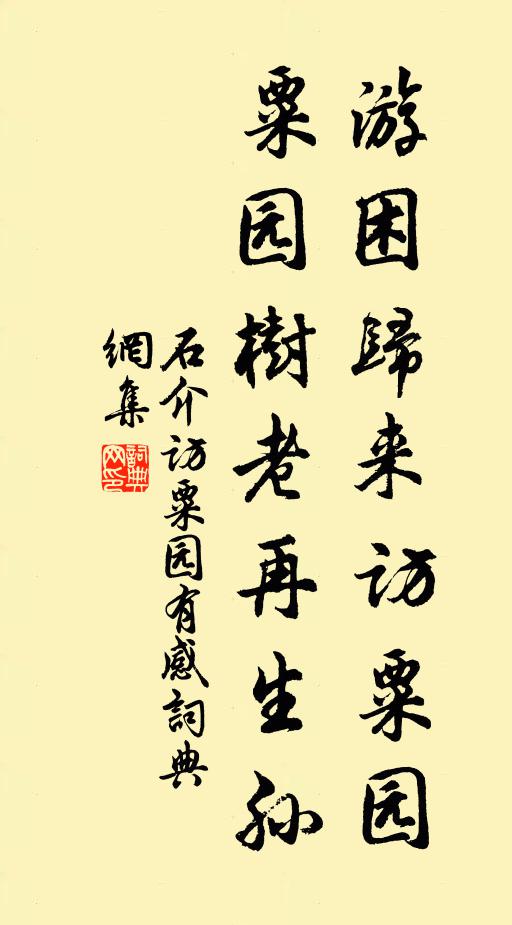 游困歸来访粟园
粟园樹老再生孙
石介访粟园有感詞典
網集
詞典
网印